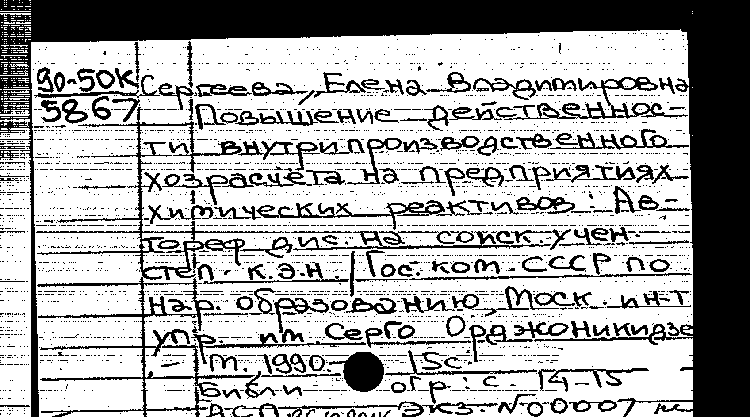 90-50к Сергеева, Елена Владимировна
5867 Повышение действеннос-
ти внутрипроизводственного
хозрасчёта на предприятиях
химических реактивов : Ав-
тореф дис. на соиск. учен.
степ. к.э.н. / Гос. ком. СССР по
нар. образованию, Моск. ин-т
упр. им Серго Орджоникидзе
.- М., 1990.- 15с.
Библиогр : с. 14-15
ДСП. экз. N00007